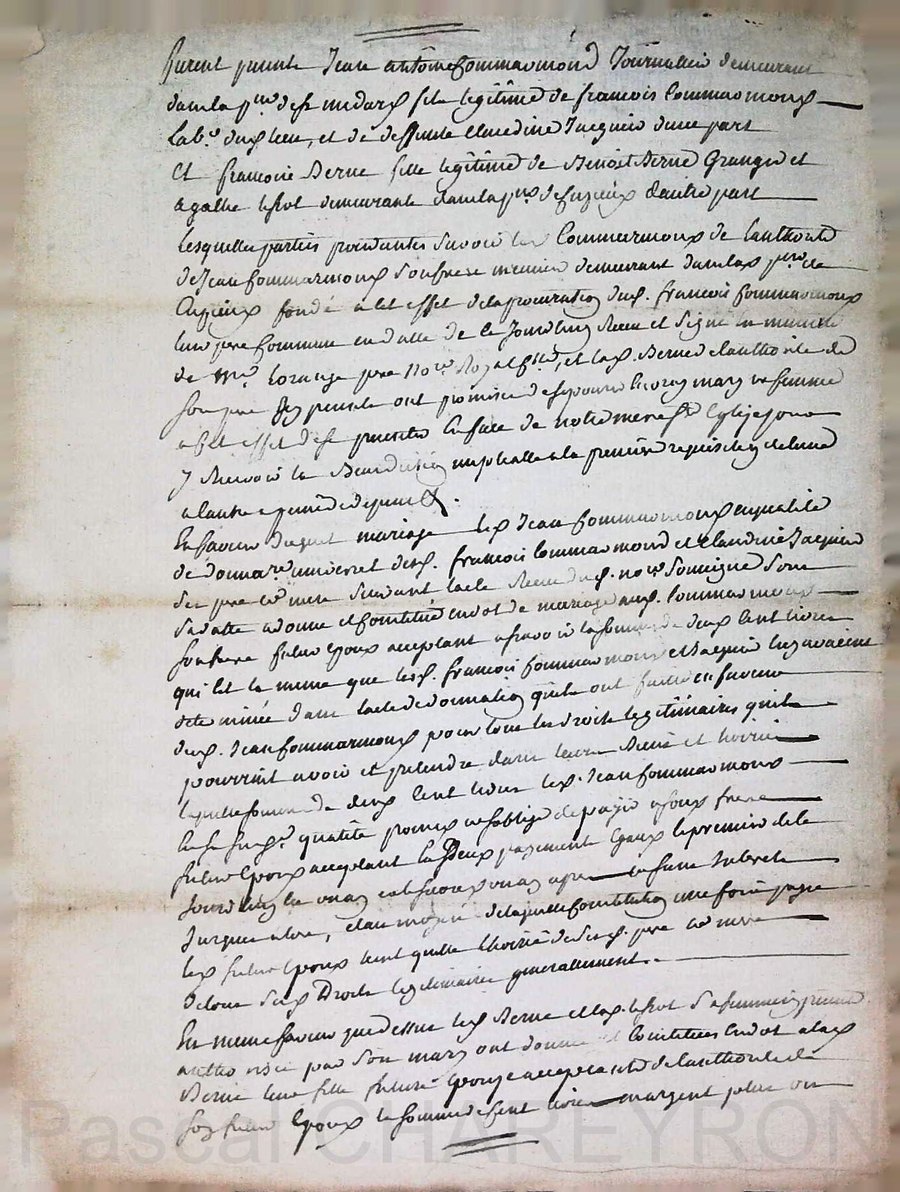 furent presents Jean antoine Commarmond Journallier demeurant
dans la psse de st medard fils legitime de francois Commarmond
Labr dud lieu, et de deffunte Claudine Jacquier d'une part
Et francoise Berne fille legitime de Benoit Berne Granger et
agathe demeurante dans la psse de Cuzieux d'autre part
Lesquelles parties procedantes savoir led Commarmond de l'authorité
de Jean Commarmond son frere meunier demeurant dans lad psse de
Cuzieux fondé a cet effet de la procuration dud. francois Commarmond
leur pere Commun en datte de ce Jourdhuy Receu et signé la minutte
de Me Lorange pere nore Royal, et lad. Berne de l'authorité de
son pere presents ont promis de se prendre en vray mary et femme
a cet effet de se presenter en face de notre mere ste Eglise pour
y Recevoir la Benediction nuptialle a la premiere requisition de l'une
a l'autre a peine de depens &.
En faveur duquel mariage led Jean Commarmond en qualité
de donnare universel desd. francois Commarmond et Claudine Jacquier
ses pere et mere suivant l'acte Receu dud. nore soussigné sous
sa datte a donné et constitué en dot de mariage aud. Commarmond
son frere futur Epoux acceptant a savoir la somme de deux Cent livres
qui est la meme que lesd. francois Commarmond et Jacquier luy avoient
determinée dans l'acte de donnation qu'ils ont faitte en faveur
dud. Jean Commarmond pour tous les droits legitimaires qu'il
pourroit avoir et pretendre dans leurs Biens et hoirie
laquelle somme de deux Cent livres led. Jean Commarmond
en sa qualité promet et s'oblige de payer a son frere
futur Epoux acceptant en deux payements Egaux le premier de ce
Jourdhuy en un an et l'autre un an apres sans Interets
Jusques alors, et au moyen de laquelle Constitution une fois payée
led futur Epoux tient quitte l'hoirie de sesd. pere et mere
de tous sesd Droits legitimaires generallement.
En meme faveur que dessus led Berne et lad. sa femme
authorisée par son mary ont donné et Constitué en dot a lad
Berne leur fille future Epouse acceptante de l'authorité de
son futur Epoux la somme de Cent livres argent plus un
Pascal CHAREYRON